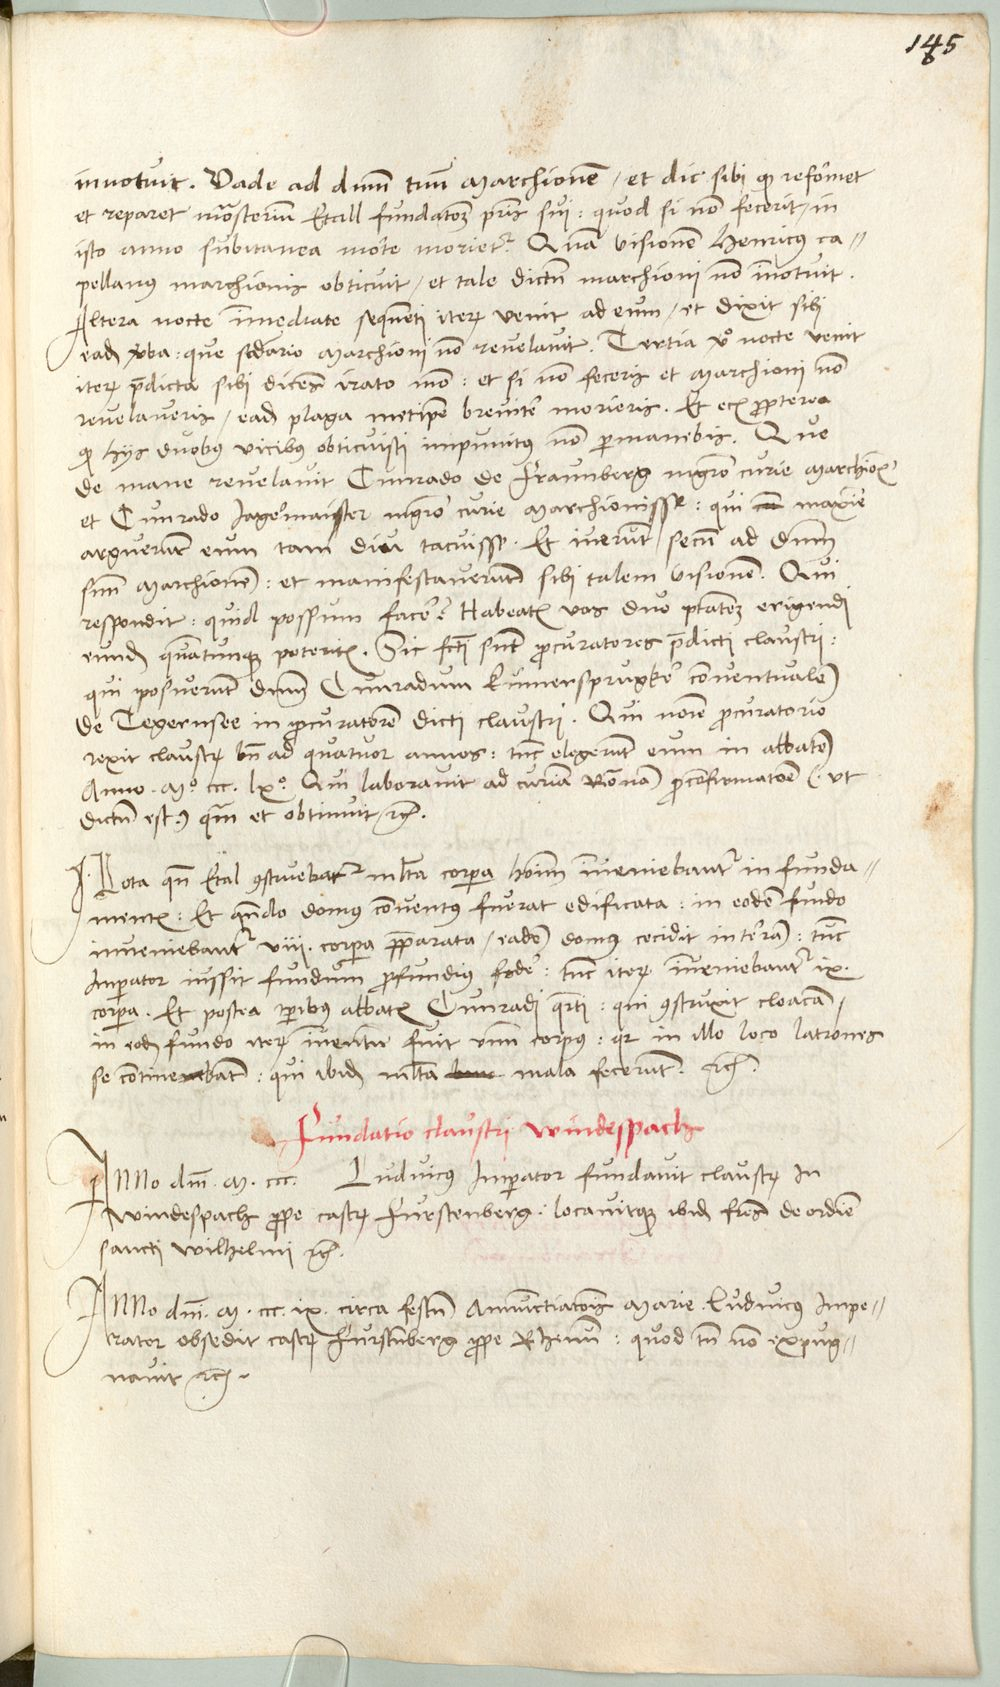 145
innotuit. Vade ad dnm̄ tuū Marchionē / et dic sibi qꝫ refor̄met
et reparet mōasteriū Etall fundatoēꝫ pr̄is sui : quod si nō fecerit / in
isto anno subitanea mor̄te morietꝰ. Quā visionē Henricus ca=
pellanus marchionis obticuit / et tale dictū marchioni nō īnotuit.
Altera nocte īmediate sequēti iterꝫ venit ad eum / et dixit sibi
eadē v̄ba : que secūdario Marchioni nō revelavit. Tertia vͦ nocte venit
iterꝫ p̄dicta sibi dicēs irato aīo : et si nō feceris et Marchioni nō
revelaveris / eadē plaga metipse breviter morieris. Et propterea
qꝫ hys duobus vicibus obticuisti impunitus nō pmanebis. Que
de mane revelavit Cunrado de Fraunberg mgr̄o curie Marchiōis
et Cunrado Jagermaister mgr̄o curie Marchionisse : qui maxīe
arguerūt eum tam diu tacuisse. Et iverūt secū ad dnm̄
suū Marchionē : et manifestaverūt sibi talem visionē. Qui
respondit : quid possum facēr? Habeatis vos duo ptātēꝫ erigendi
eundē quātunqꝫ poteritis. Sic fc̄ti sūt p̄curatores p̄dicti claustri :
qui posuerūt dnm̄ Cunradum Kumersprugkēr conventualē
de Tegernsee in p̄curatorē dicti claustri. Qui noīe p̄curatorio
rexit claustrꝫ bn̄ ad quatuor annos : tūc elegerūt eum in abbatē
Anno. Mͦ ccc. lxͦ. Qui laboravit ad curiā Romanā p̄ cōfirmatoēe (. ut
dictū est .) quā et obtinuit ꝛcꝫ.
Nota qn̄ Etal ꝯstruebatꝰ mlt̄a corpora hoīm īveniebantꝰ in funda=
mentis : Et qn̄do domus conventus fuerat edificata : in eodē fundo
inveniebantꝰ viii. corpora p̄parata / eadē domus cecidit in terrā : tūc
Imperator iussit fundum profundius fodēr : tūc iterꝫ īveniebantꝰ ix.
corpora. Et postea tp̄ibus abbatis Cunradi qr̄ti : qui ꝯstruxit cloacā /
in eodē fundo iterꝫ īventū fuit unū corpus : qr in illo loco latrones
se continebāt : qui ibidē mlt̄a mala fecerūt. ꝛcꝫ.
Fundatio claustri Windespach
Anno dnī. M. ccc. Ludvicus Imperator fundavit claustrꝫ In
Windespach prope castrꝫ Furstenberg : locavitqꝫ ibidē frēs de ordīe
sancti Wilhelmi ꝛcꝫ.
Anno dnī. M. ccc. ix. circa festū Annunctiatōis Marie. Ludvicus Impe=
rator obsedit castrꝫ Furstnberg prope Rhenū : quod tn̄ nō expug=
navit ꝛcꝫ.